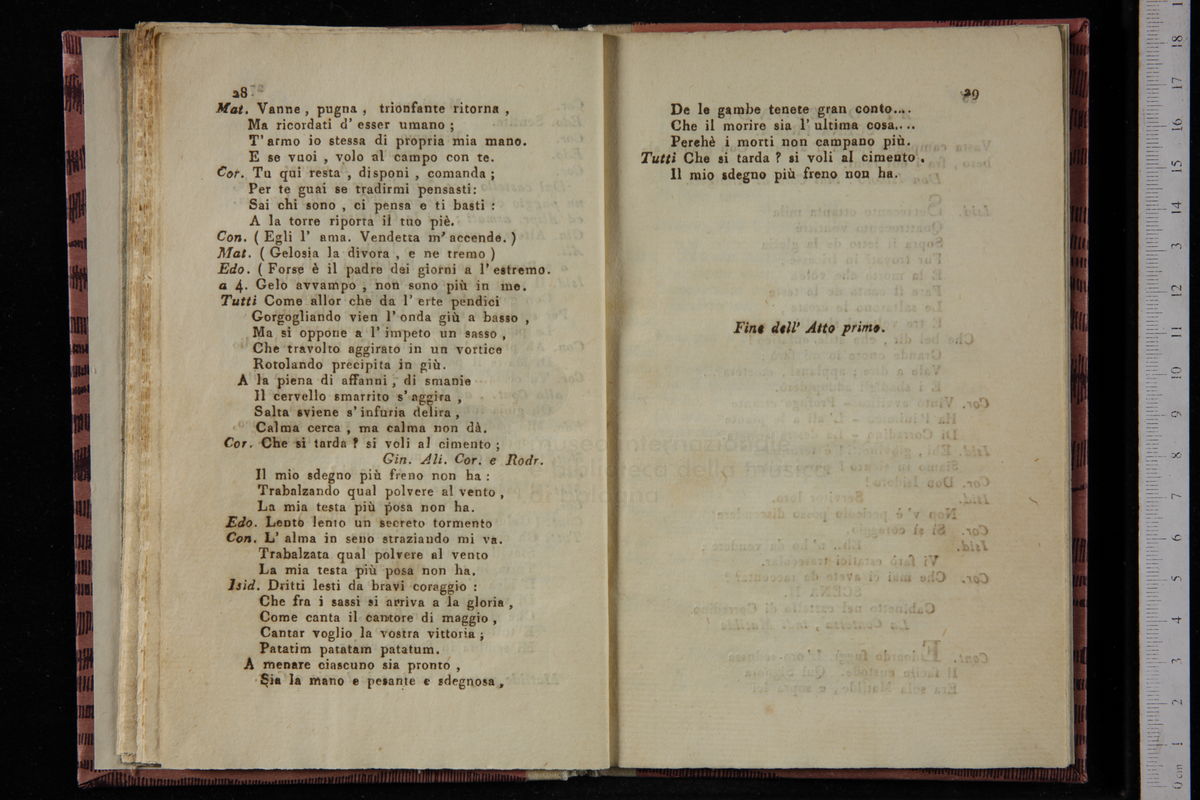 28
Mat. Vanne, pugna, trionfante ritorna,
Ma ricordati d' esser umano;
T' armo io stessa di propria mia mano.
E se vuoi, volo al campo con te.
Cor. Tu qui resta, disponi, comanda;
Per te guai se tradirmi pensasti:
Sai chi sono, ci pensa e ti basti:
A la torre riporta il tuo piè.
Con. (Egli l' ama. Vendetta m' accende.)
Mat. (Gelosia la divora, e ne tremo)
Edo. (Forse è il padre dei giorni a l' estremo.
a 4. Gelo avvampo, non sono più in me.
Tutti Come allor che da l' erte pendici
Gorgogliando vien l' onda giù a basso,
Ma si oppone a l' impeto un sasso,
Che travolto aggirato in un vortice
Rotolando precipita in giù.
A la piena di affanni, di smanie
Il cervello smarrito s' aggira,
Salta sviene s' infuria delira,
Calma cerca, ma calma non dà.
Cor. Che si tarda? si voli al cimento;
Gin. Ali. Cor. e Rodr.
Il mio sdegno più freno non ha:
Trabalzando qual polvere al vento,
La mia testa più posa non ha.
Edo. Lento lento un secreto tormento
Con. L' alma in seno straziando mi va.
Trabalzata qual polvere al vento
La mia testa più posa non ha.
Isid. Dritti lesti da bravi coraggio:
Che fra i sassi si arriva a la gloria,
Come canta il cantore di maggio,
Cantar voglio la vostra vittoria;
Patatim patatam patatum.
A menare ciascuno sia pronto,
Sia la mano e pesante e sdegnosa,
29
De le gambe tenete gran conto....
Che il morire sia l' ultima cosa....
Perehè i morti non campano più.
Tutti Che si tarda? si voli al cimento.
Il mio sdegno più freno non ha.
Fine dell' Atto primo.
museo internazionale
biblioteca della musica
di bologna
0 cm 1 2 3 4 5 6 7 8 9 10 11 12 13 14 15 16 17 18